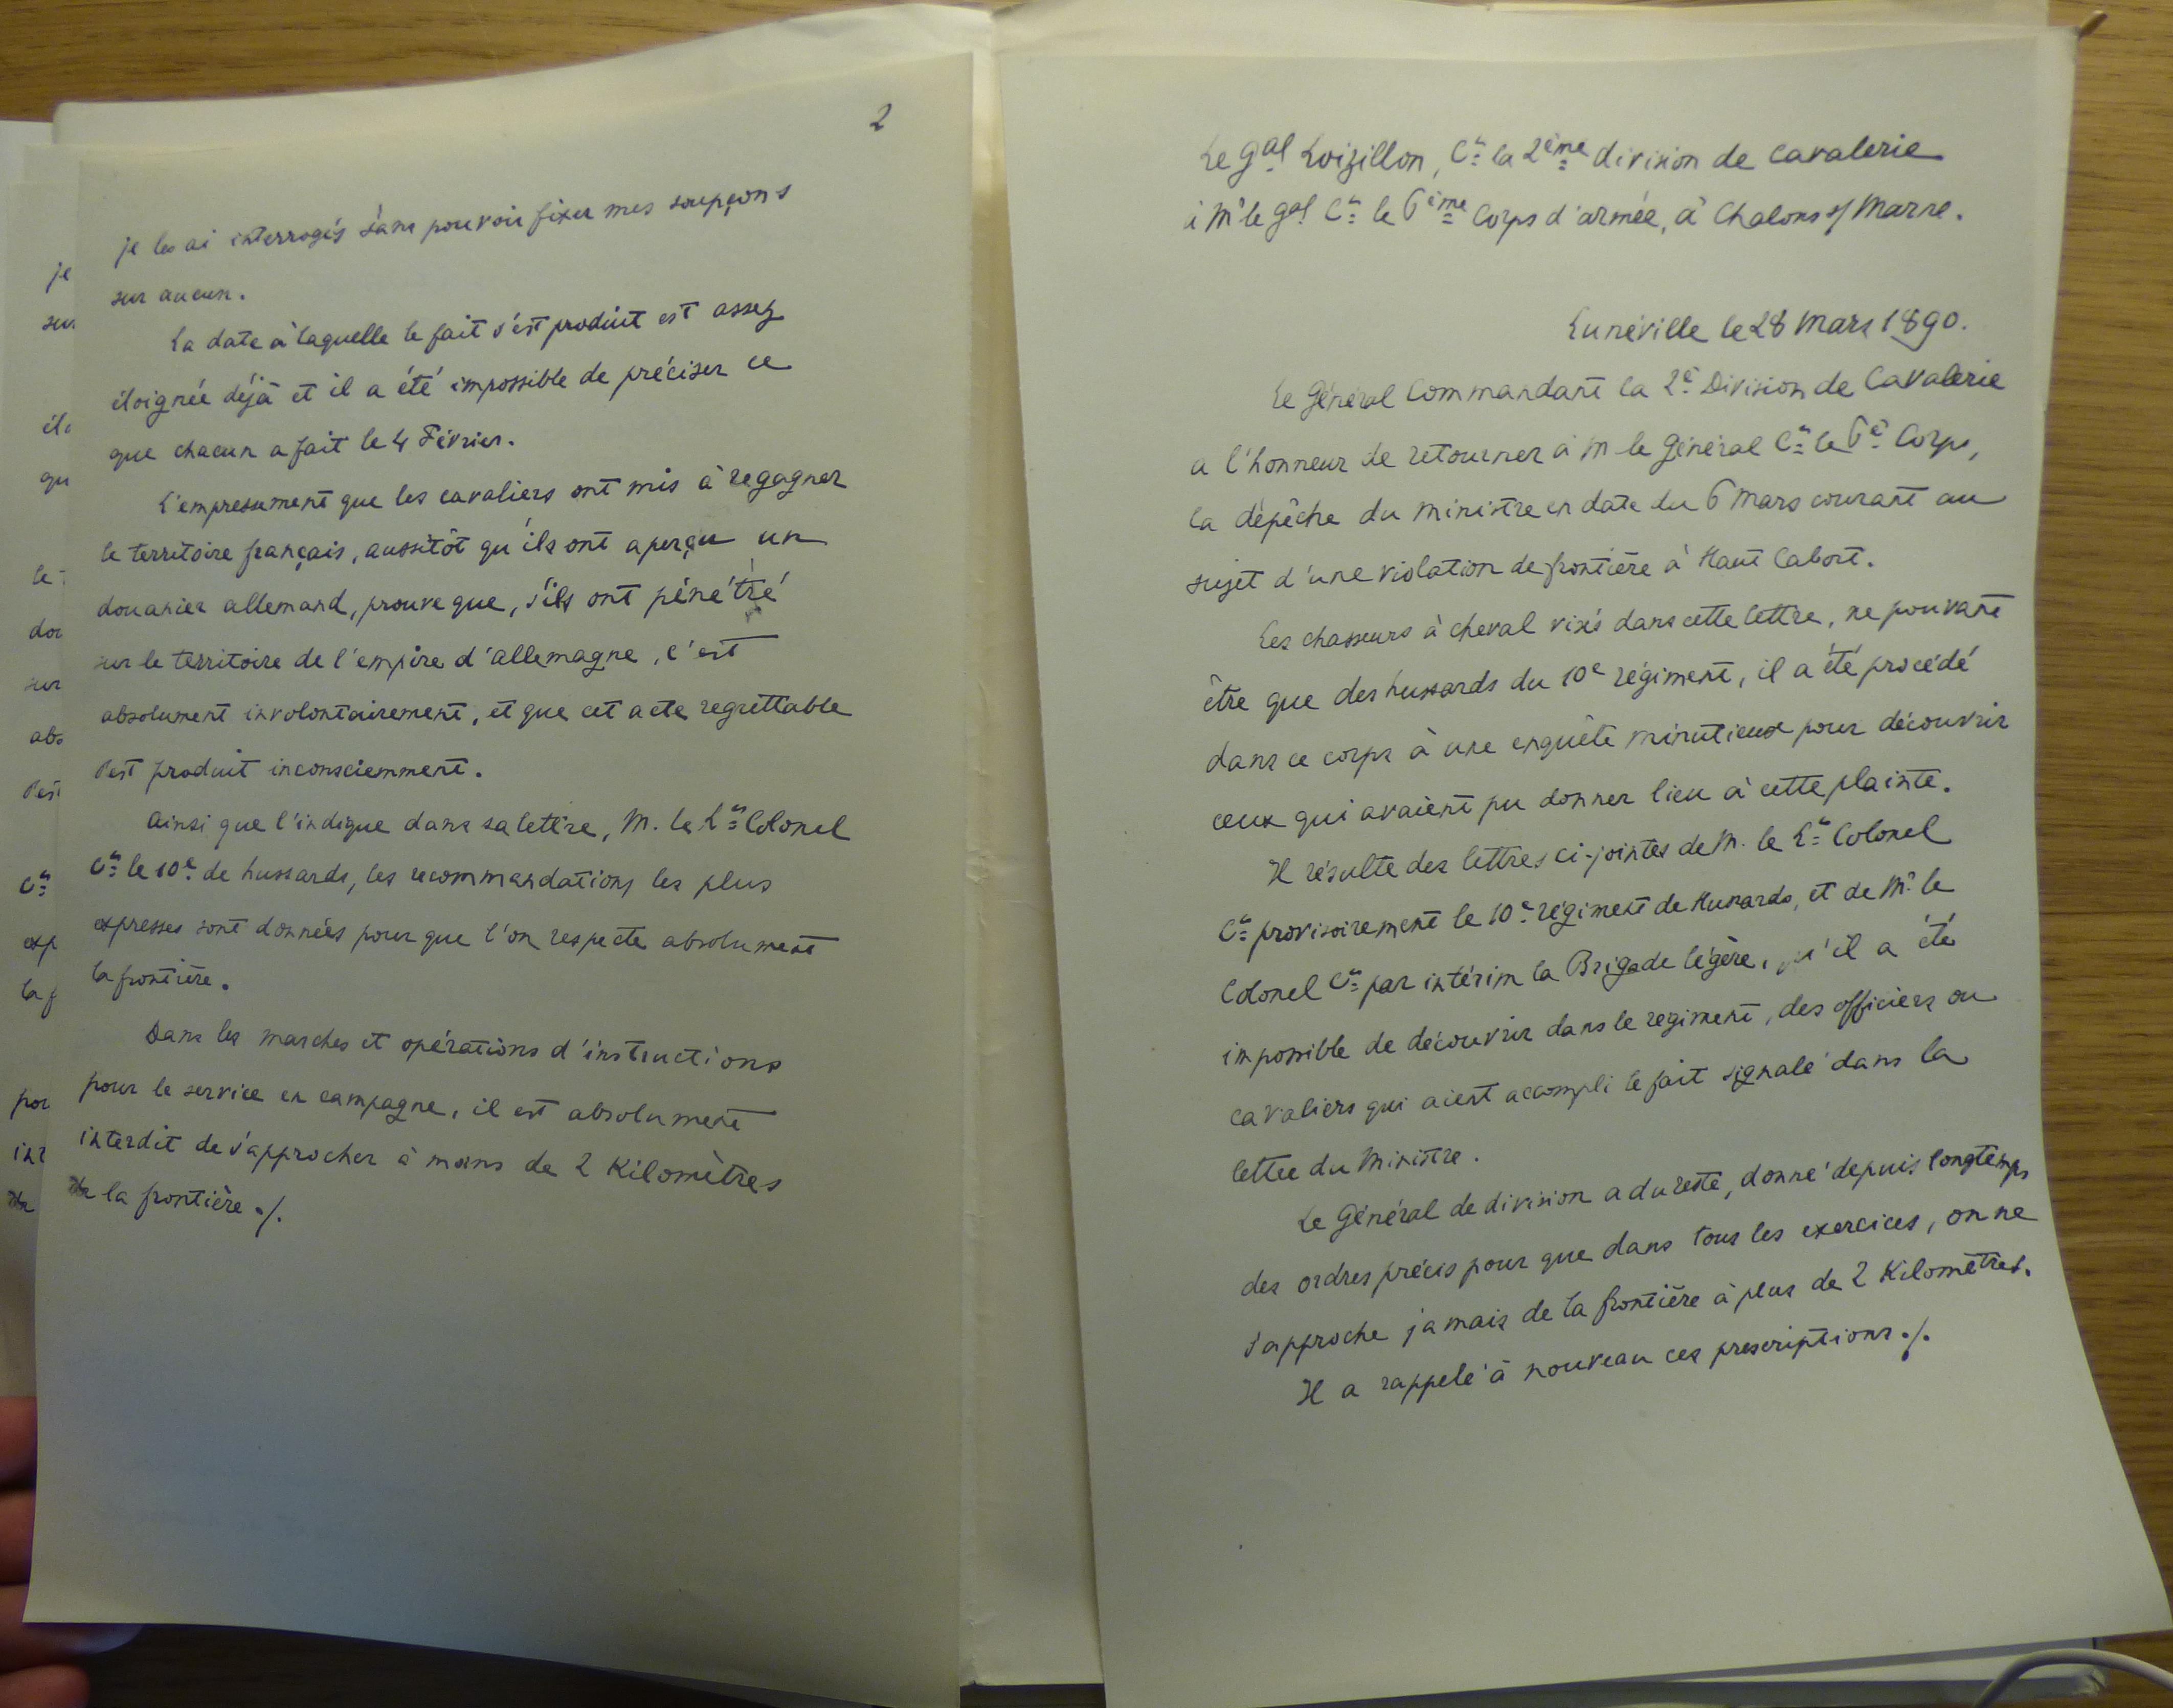 2
je les ai interrogés sans pouvoir fixer mes soupçons
sur aucun.
La date à laquelle le fait s'est produit est assez
éloignée déjà et il a été impossible de préciser ce
que chacun a fait le 4 Février.
L'empressement que les cavaliers ont mis à regagner
le territoire français, aussitôt qu'ils ont aperçu un
douanier allemand, prouve que, s'ils ont pénétré
sur le territoire de l'empire d'allemagne, c'est
absolument involontairement, et que cet acte regrettable
s'est produit inconsciemment.
Ainsi que l'indique dans sa lettre, M. le Lt Colonel
Ct le 10e de hussards, les recommandations les plus
expresses sont données pour que l'on respecte absolument
la frontière.
Dans les marches et opérations d'instructions
pour le service en campagne, il est absolument
interdit de s'approcher à moins de 2 Kilomètres
de la frontière ./.
je
sur
élo
qu
le t
dou
sur
abs
s'est
Ct
exp
la f
pou
int
de
Le gal Loizillon, Ct la 2ème division de cavalerie
à Mr le gal Ct le 6ème Corps d'armée, à Chalons s/ Marne.
Lunéville le 28 Mars 1890.
Le Général Commandant la 2e Division de Cavalerie
a l'honneur de retourner à M le Général Ct le 6e Corps,
la dépêche du ministre en date du 6 mars courant au
sujet d'une violation de frontière à Haut Cabort.
Les chasseurs à cheval visés dans cette lettre, ne pouvant
être que des hussards du 10e régiment, il a été procédé
dans ce corps à une enquête minutieuse pour découvrir
ceux qui avaient pu donner lieu à cette plainte.
Il résulte des lettres ci-jointes de M. le Lt Colonel
Ct provisoirement le 10e régiment de Hussards, et de Mr le
Colonel Ct par intérim la Brigade légère, qu'il a été
impossible de découvrir dans le régiment, des officiers ou
cavaliers qui aient accompli le fait signalé dans la
lettre du Ministre.
Le Général de division a du reste, donné depuis longtemps
des ordres précis pour que dans tous les exercices, on ne
s'approche jamais de la frontière à plus de 2 Kilomètres.
Il a rappelé à nouveau ces prescriptions ./.